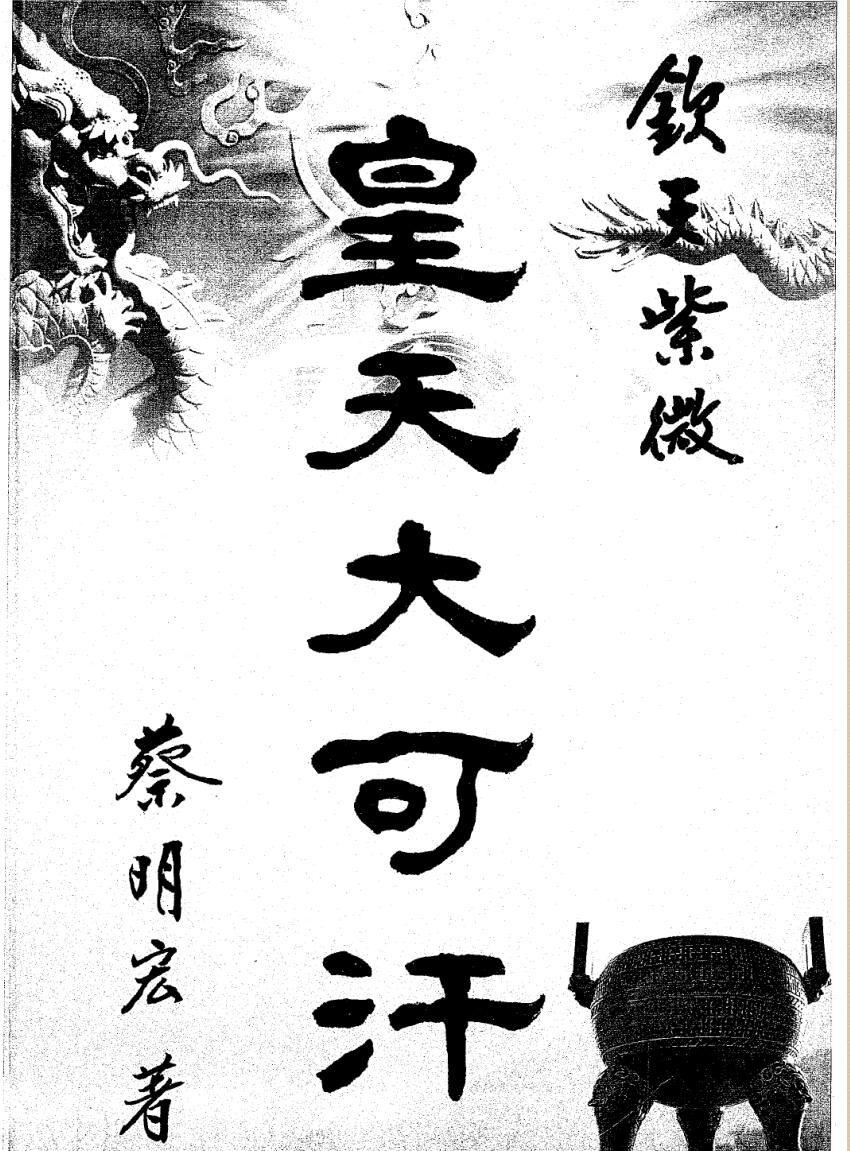 欽天紫微
皇天大可汗
蔡明宏著